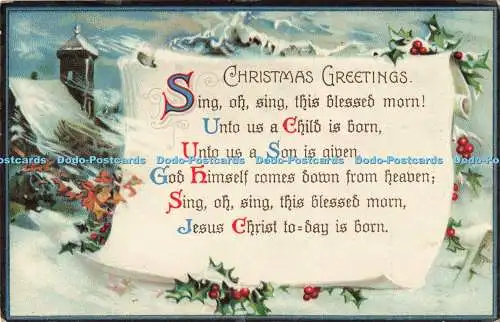 CHRISTMAS GREETINGS.
Sing, oh, sing, this blessed morn!
Unto us a Child is born,
Unto us a Son is given,
God Himself comes down from heaven;
Sing, oh, sing, this blessed morn,
Jesus Christ to=day is born.
Dodo-Postcards Dodo-Postcards Dodo-Postcards Dodo-Postcards Dodo-Postcards